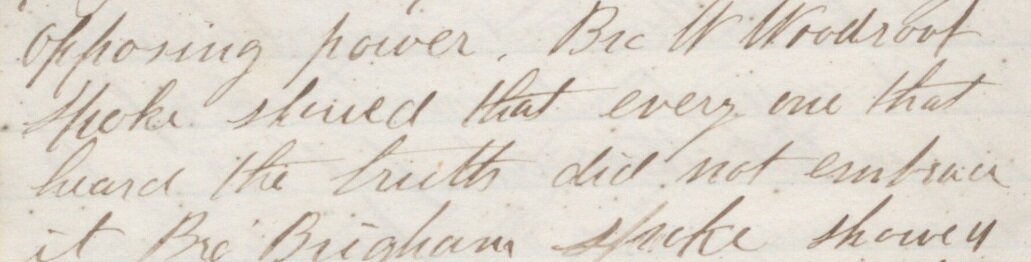 opposing power, Bro W Woodroof
spoke shued that every one that
heard the truth did not embrace
it Bro Brigham spoke showey